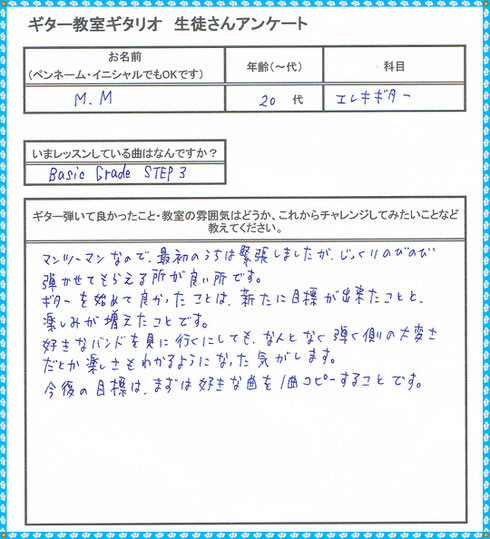 ギター教室ギタリオ 生徒さんアンケート
お名前
(ペンネーム・イニシャルでもOKです)
年齢(～代)
科目
M.M
20 代
エレキギター
いまレッスンしている曲はなんですか？
Basic Grade STEP 3
ギター弾いて良かったこと・教室の雰囲気はどうか、これからチャレンジしてみたいことなど
教えてください。
マンツーマンなので、最初のうちは緊張しましたが、じっくりのびのび
弾かせてもらえる所が良い所です。
ギターを始めて良かったことは、新たに目標が出来たことと、
楽しみが増えたことです。
好きなバンドを見に行くにしても、なんとなく弾く側の大変さ
だとか楽しさもわかるようになった気がします。
今後の目標は、まずは好きな曲を1曲コピーすることです。